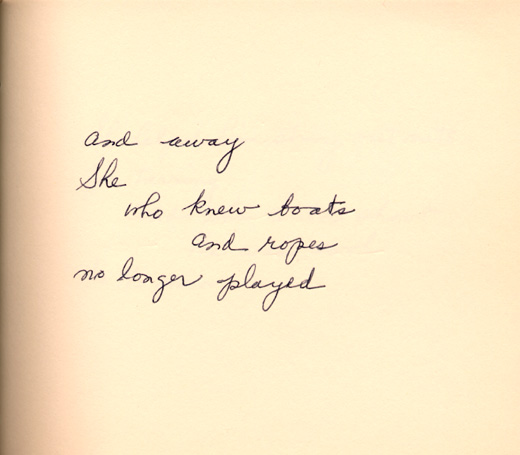 and away
She
who knew boats
and ropes
no longer played